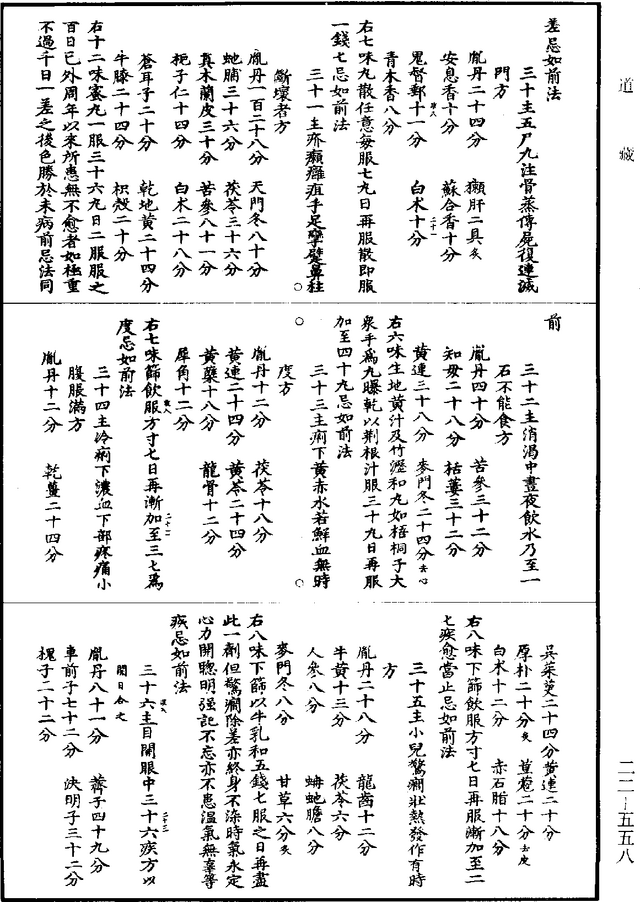 道藏
差忌如前法
三十主五尸九注骨蒸傳屍復連滅
門方
胤丹二十四分　獺肝二具炙
安息香十分　蘇合香十分
鬼督郵十一分　白朮十分
青木香八分
右七味丸散任意每服七丸日再服散即服
一錢七忌如前法
三十一主疥癩癰疽手足攣躄鼻柱
斷壞者方
胤丹一百二十八分　天門冬八十分
虵脯三十六分　茯苓三十六分
真木蘭皮三十分　苦參八十一分
梔子仁十四分　白朮二十八分
蒼耳子二十分　乾地黃二十四分
牛膝二十四分　枳殼二十分
右十二味蜜丸一服三十六丸日二服服之
百日已外周年以來所患無不愈者如極重
不過千日一差之後色勝於未病前忌法同
前
三十二主消渴中晝夜飲水乃至一
石不能食方
胤丹四十分　苦參三十二分
知母二十八分　栝蔞三十二分
黃連三十八分　麥門冬二十四分去心
右六味生地黃汁及竹瀝和丸如梧桐子大
眾手為丸曝乾以荊根汁服三十九日再服
加至四十九忌如前法
三十三主痢下黃赤水若鮮血無時
度方
胤丹十二分　茯苓十八分
黃連二十四分　黃芩二十四分
黃蘗十八分　龍骨十二分
犀角十二分
右七味篩飲服方寸七日再漸加至三七為
度忌如前法
三十四主冷痢下濃血下部疼痛小
腹脹滿方
胤丹十二分　乾薑二十四分
吳茱萸二十四分黃連二十分
厚朴二十分炙　荳蔲二十分去皮
白朮十二分　赤石脂十八分
右八味下篩飲服方寸七日再服漸加至二
七疾愈當止忌如前法
三十五主小兒驚癇壯熱發作有時
方
胤丹二十八分　龍齒十二分
牛黃十三分　茯苓六分
人參八分　蚺虵膽八分
麥門冬八分　甘草六分炙
右八味下篩以牛乳和五錢七服之日再盡
此一劑但驚癇除差亦終身不染時氣永定
心力開聰明強記不忘亦不患溫氣無辜等
疾忌如前法
三十六主目開眼中三十六疾方以
開日合之
胤丹八十一分　薺子四十九分
車前子七十二分　決明子三十二分
槐子二十二分
二二—五五八